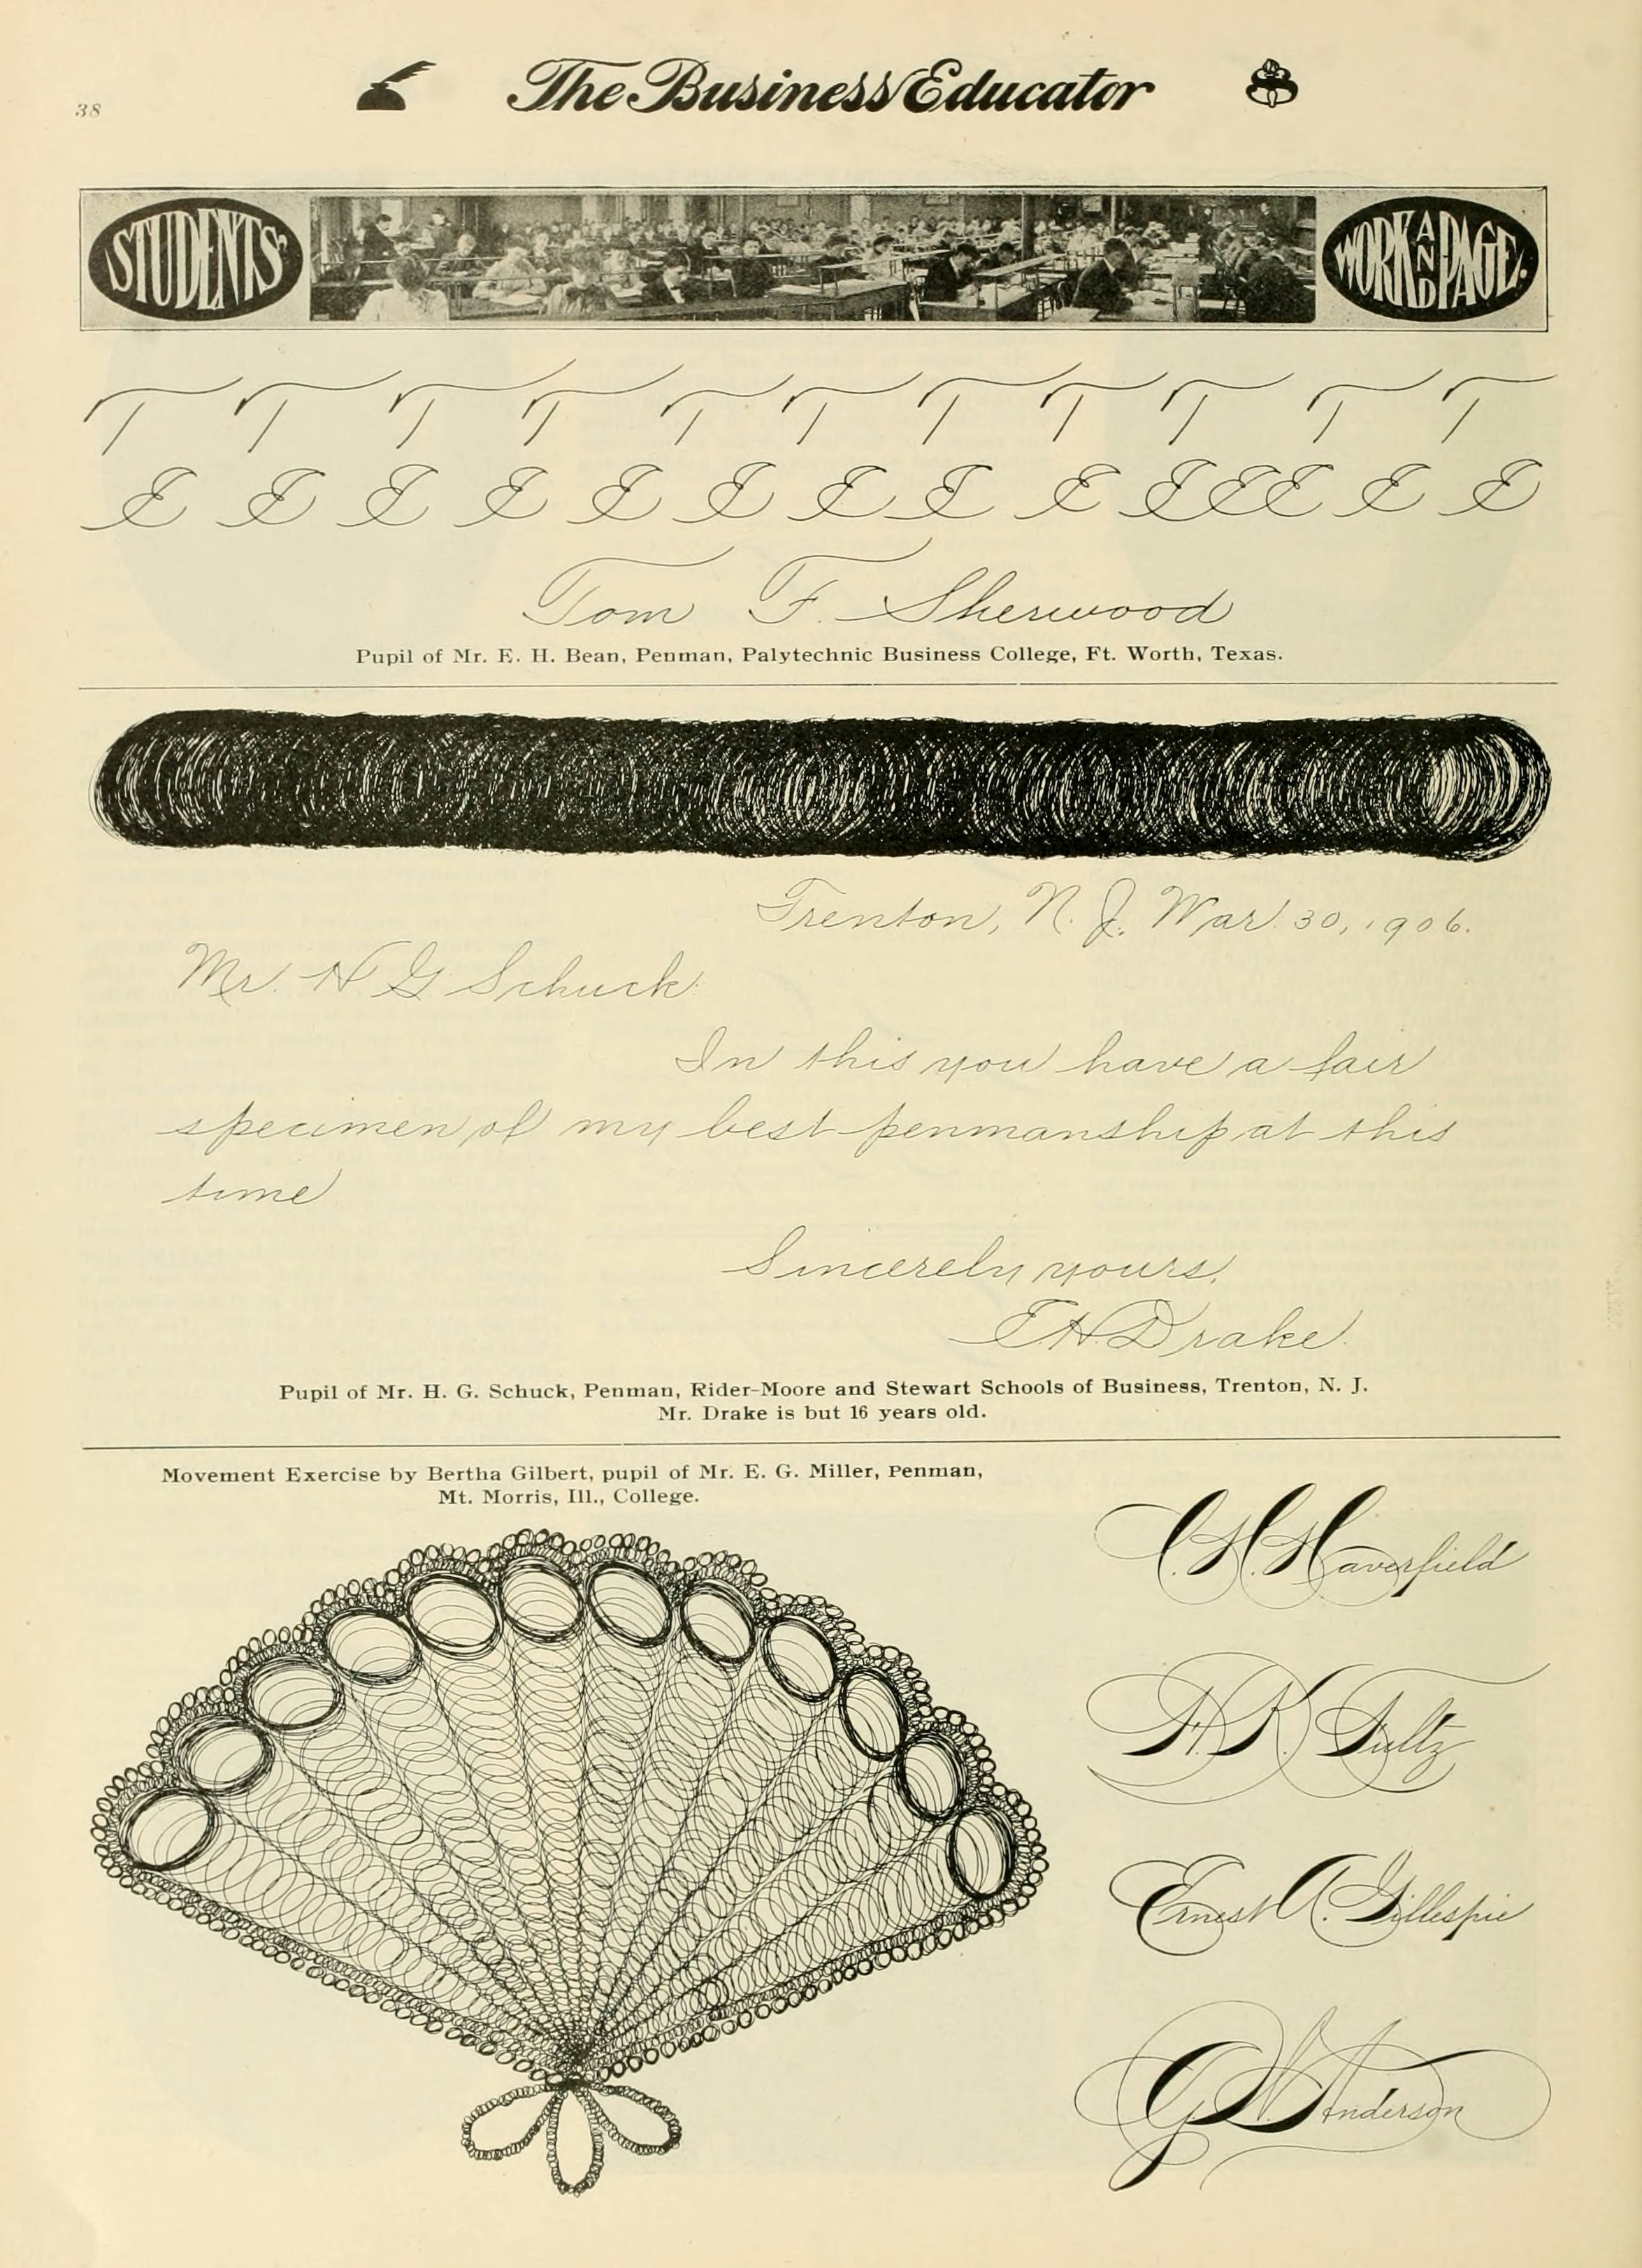 38
The Business Educator
STUDENTS'
WORK AND PAGE.
T T T T T T T T T T T
E E E E E E E E E E E E E E
Tom F. Sherwood
Pupil of Mr. E. H. Bean, Penman, Palytechnic Business College, Ft. Worth, Texas.
Trenton, N. J. Mar. 30, 1906.
Mr. H G Schuck
In this you have a fair
specimen of my best penmanship at this
time
Sincerely yours,
E H Drake.
Pupil of Mr. H. G. Schuck, Penman, Rider-Moore and Stewart Schools of Business, Trenton, N. J.
Mr. Drake is but 16 years old.
Movement Exercise by Bertha Gilbert, pupil of Mr. E. G. Miller, Penman,
Mt. Morris, Ill., College.
C. H. Haverfield
Ernest A. Gillespie
G W Anderson